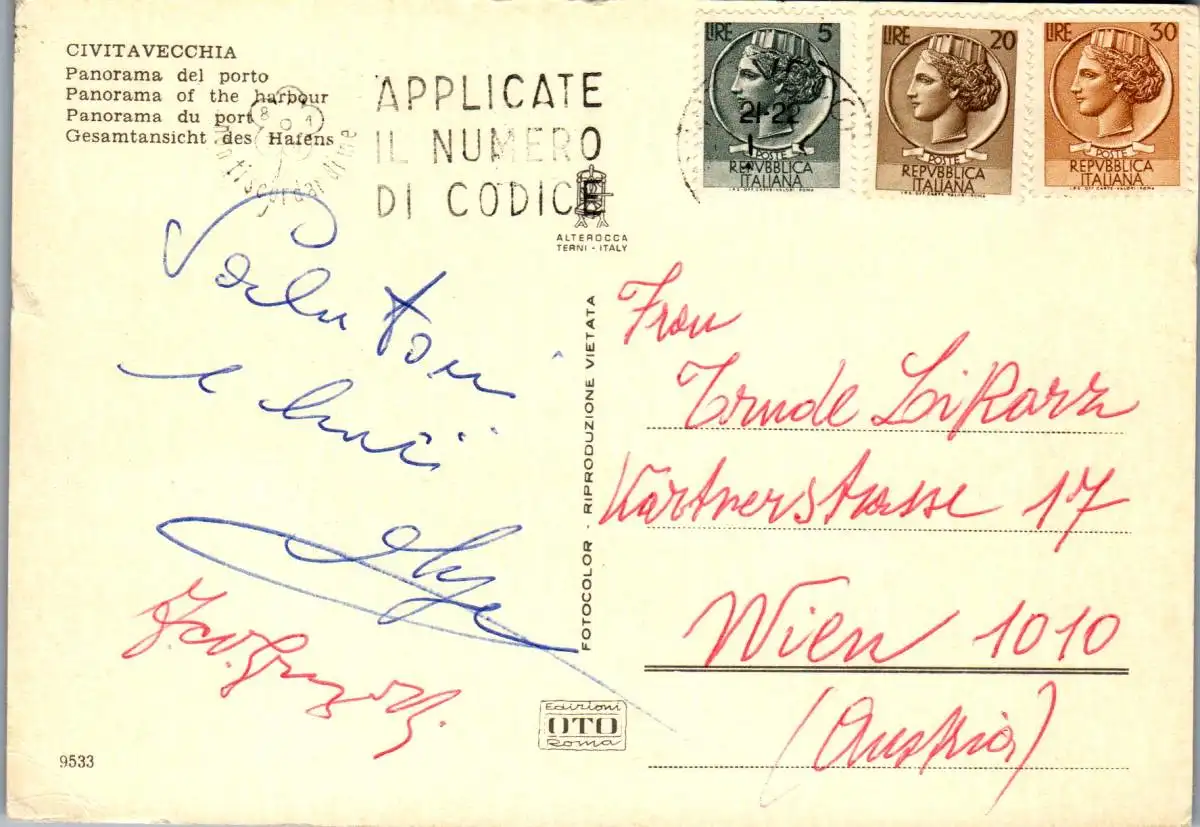 CIVITAVECCHIA
Panorama del porto
Panorama of the harbour
Panorama du port
Gesamtansicht des Hafens
APPLICATE
IL NUMERO
DI CODICE
LIRE 5
21-22
POSTE
REPVBBLICA
ITALIANA
LIRE 20
POSTE
REPVBBLICA
ITALIANA
LIRE 30
POSTE
REPVBBLICA
ITALIANA
I.P.S. OFF. CARTE-VALORI-ROMA
ALTEROCCA
TERNI - ITALY
Salutoni
e
FOTOCOLOR - RIPRODUZIONE VIETATA
Frau
Trude Likarz
Kärtnerstrasse 17
Wien 1010
(Austria)
Edizioni
OTO
Roma
9533